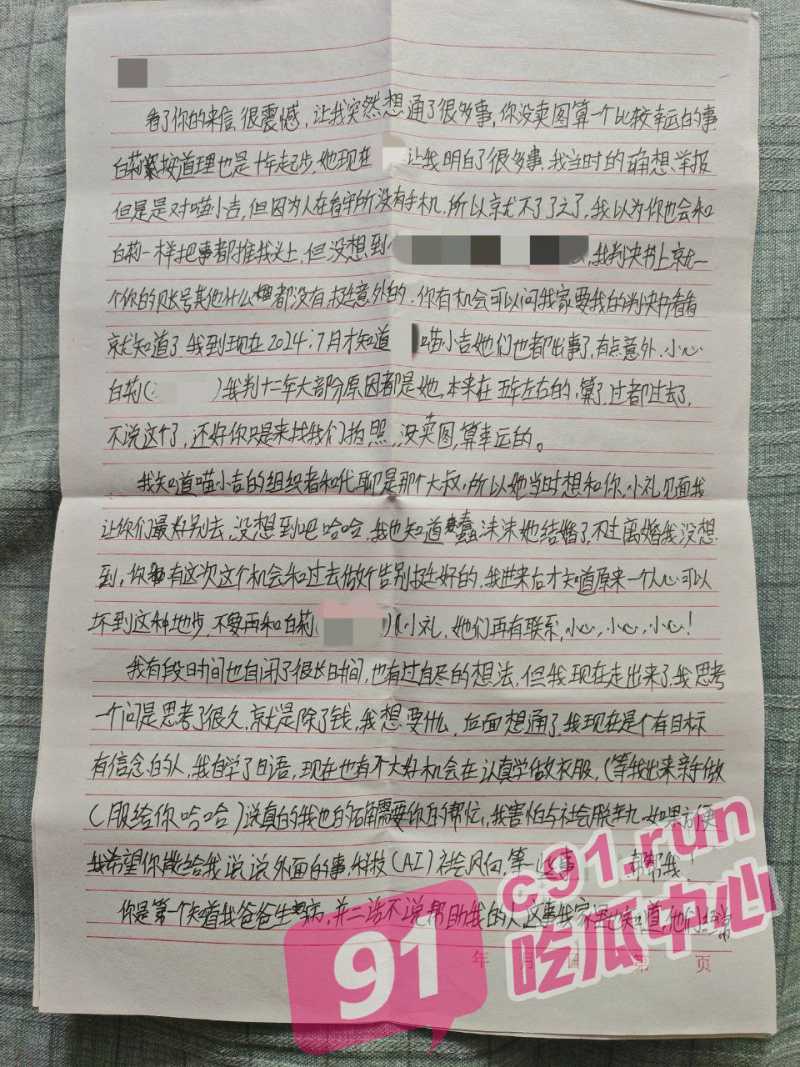 看了你的来信,很震憾,让我突然想通了很多事,你没卖图算一个比较幸运的事
白莉按道理也是十年起步,她现在 让我明白了很多事,我当时的确想举报
但是是对喵小吉,但因为人在看守所没有手机,所以就不了了之了,我以为你也会和
白莉一样把事都推我头上,但没想到 我判决书上就一
个你的账号其他什么都没有,挺意外的,你有机会可以问我家要我的判决书看看
就知道了,我到现在2024.7月才知道 喵小吉她们也都出事了,有点意外,小心
白莉( )我判十二年大部分原因都是她,本来在五年左右的,算了,过都过去了,
不说这个了,还好你只是来找我们拍照,没卖图,算幸运的。
我知道喵小吉的组织者和代聊是那个大叔,所以她当时想和你,小礼见面我
让你们最好别去,没想到吧哈哈,我也知道蠢沫沫她结婚了,不过离婚我没想
到,你有这次这个机会和过去做个告别挺好的,我进来后才知道原来一个人心可以
坏到这种地步,不要再和白莉( )小礼,她们再有联系,小心,小心,小心!
我有段时间也自闭了很长时间,也有过自尽的想法,但我现在走出来了,我思考
一个问是思考了很久,就是除了钱,我想要什么,后面想通了,我现在是个有目标
有信念的人,我自学了日语,现在也有个大好机会在认真学做衣服,(等我出来亲手做
C服给你哈哈)说真的我也的确需要你的帮忙,我害怕与社会脱轨,如果方便
我希望你能给我说说外面的事,科技(AI)社会风向,等一些事 帮帮我!
你是第一个知道我爸爸生病,并二话不说帮助我的人这事我家里也知道,他们经常
年 月 日 第 页
91
c91.run
吃瓜中心